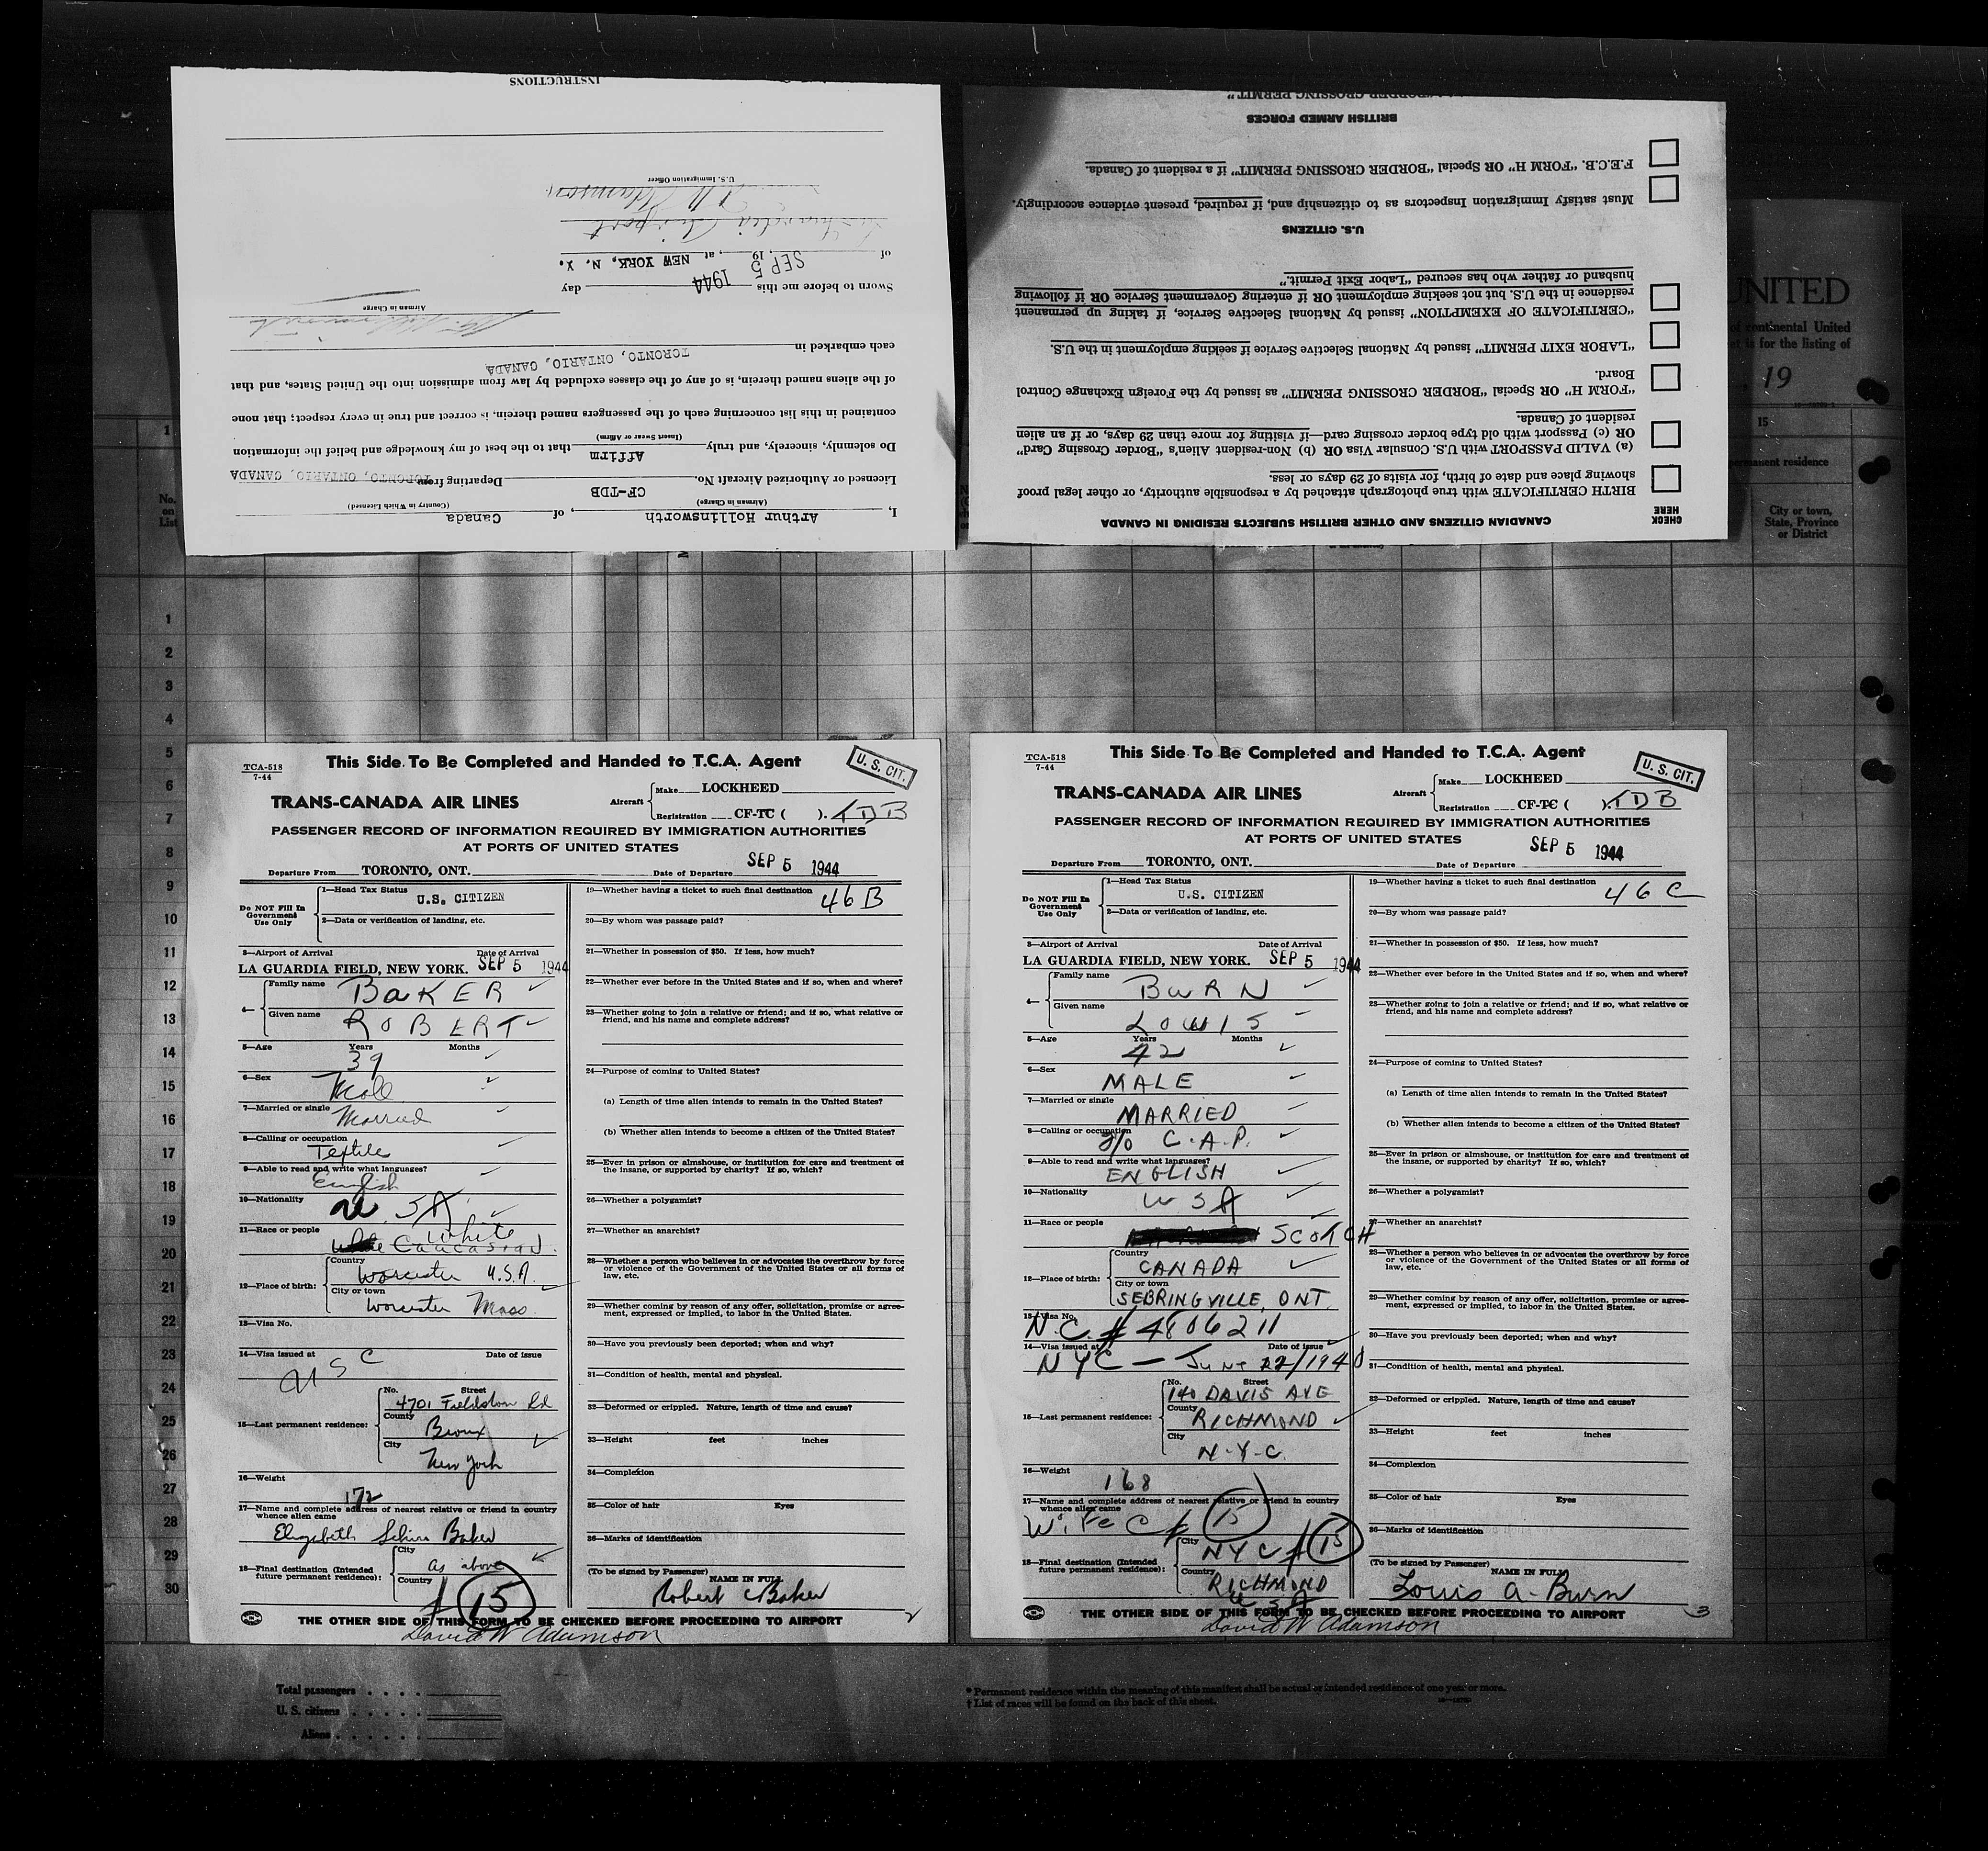 INSTRUCTIONS
U.S. Immigration Officer
of SEP 5, 19 , at NEW YORK, N. Y.
Sworn to before me this 1944 day
Airman in Charge
each embarked in TORONTO, ONTARIO, CANADA
of the aliens named therein, is of any of the classes excluded by law from admission into the United States, and that
contained in this list concerning each of the passengers named therein, is correct and true in every respect; that none
(Insert Swear or Affirm)
Do solemnly, sincerely, and truly Affirm that to the best of my knowledge and belief the information
Licensed or Authorized Aircraft No. CF-TDB Departing from TORONTO, ONTARIO, CANADA
(Airman in Charge) (Country in Which Licensed)
I, Arthur Hollinsworth, of Canada
"BORDER CROSSING PERMIT"
BRITISH ARMED FORCES
F.E.C.B. "FORM H" OR Special "BORDER CROSSING PERMIT" if a resident of Canada.
Must satisfy Immigration Inspectors as to citizenship and, if required, present evidence accordingly.
U.S. CITIZENS
husband or father who has secured "Labor Exit Permit."
residence in the U.S. but not seeking employment OR if entering Government Service OR if following
"CERTIFICATE OF EXEMPTION" issued by National Selective Service, if taking up permanent
"LABOR EXIT PERMIT" issued by National Selective Service if seeking employment in the U.S.
Board.
"FORM H" OR Special "BORDER CROSSING PERMIT" as issued by the Foreign Exchange Control
resident of Canada.
OR (c) Passport with old type border crossing card—if visiting for more than 29 days, or if an alien
(a) VALID PASSPORT with U.S. Consular Visa OR (b) Non-resident Alien's "Border Crossing Card"
showing place and date of birth, for visits of 29 days or less.
BIRTH CERTIFICATE with true photograph attached by a responsible authority, or other legal proof
CANADIAN CITIZENS AND OTHER BRITISH SUBJECTS RESIDING IN CANADA
CHECK HERE
UNITED
of continental United
is for the listing of
, 19
15
permanent residence
City or town,
State, Province
or District
1
No.
on
List
1
2
3
4
5
6
7
8
9
10
11
12
13
14
15
16
17
18
19
20
21
22
23
24
25
26
27
28
29
30
TCA-518
7-44
This Side To Be Completed and Handed to T.C.A. Agent
U. S. CIT.
TRANS-CANADA AIR LINES
Aircraft
Make LOCKHEED
Registration CF-TC ( ). TDB
PASSENGER RECORD OF INFORMATION REQUIRED BY IMMIGRATION AUTHORITIES
AT PORTS OF UNITED STATES
Departure From TORONTO, ONT. Date of Departure SEP 5 1944
Do NOT Fill In
Government
Use Only
1—Head Tax Status
U.S. CITIZEN
2—Data or verification of landing, etc.
3—Airport of Arrival Date of Arrival
LA GUARDIA FIELD, NEW YORK. SEP 5 1944
4— Family name BAKER
Given name ROBERT
5—Age Years Months
39
6—Sex Male
7—Married or single Married
8—Calling or occupation
Textiles
9—Able to read and write what languages?
English
10—Nationality U.S.A.
11—Race or people White
Caucasian
12—Place of birth:
Country
Worcester U.S.A.
City or town
Worcester Mass.
13—Visa No.
14—Visa issued at Date of issue
USC
15—Last permanent residence:
No. Street
4701 Fieldston Rd
County
Bronx
City
New York
16—Weight
172
17—Name and complete address of nearest relative or friend in country
whence alien came
Elizabeth Baker
18—Final destination (Intended
future permanent residence):
City
as above
Country
# 15
19—Whether having a ticket to such final destination
46 B
20—By whom was passage paid?
21—Whether in possession of $50. If less, how much?
22—Whether ever before in the United States and if so, when and where?
23—Whether going to join a relative or friend; and if so, what relative or
friend, and his name and complete address?
24—Purpose of coming to United States?
(a) Length of time alien intends to remain in the United States?
(b) Whether alien intends to become a citizen of the United States?
25—Ever in prison or almshouse, or institution for care and treatment of
the insane, or supported by charity? If so, which?
26—Whether a polygamist?
27—Whether an anarchist?
28—Whether a person who believes in or advocates the overthrow by force
or violence of the Government of the United States or all forms of
law, etc.
29—Whether coming by reason of any offer, solicitation, promise or agree-
ment, expressed or implied, to labor in the United States.
30—Have you previously been deported; when and why?
31—Condition of health, mental and physical.
32—Deformed or crippled. Nature, length of time and cause?
33—Height feet inches
34—Complexion
35—Color of hair Eyes
36—Marks of identification
(To be signed by Passenger)
NAME IN FULL
Robert Baker
THE OTHER SIDE OF THIS FORM TO BE CHECKED BEFORE PROCEEDING TO AIRPORT
2
David W Adamson
TCA-518
7-44
This Side To Be Completed and Handed to T.C.A. Agent
U. S. CIT.
TRANS-CANADA AIR LINES
Aircraft
Make LOCKHEED
Registration CF-TC ( ). TDB
PASSENGER RECORD OF INFORMATION REQUIRED BY IMMIGRATION AUTHORITIES
AT PORTS OF UNITED STATES
Departure From TORONTO, ONT. Date of Departure SEP 5 1944
Do NOT Fill In
Government
Use Only
1—Head Tax Status
U.S. CITIZEN
2—Data or verification of landing, etc.
3—Airport of Arrival Date of Arrival
LA GUARDIA FIELD, NEW YORK. SEP 5 1944
4— Family name BURN
Given name LOUIS
5—Age Years Months
42
6—Sex
MALE
7—Married or single
MARRIED
8—Calling or occupation
C.A.P.
9—Able to read and write what languages?
ENGLISH
10—Nationality
USA
11—Race or people
SCOTCH
12—Place of birth:
Country
CANADA
City or town
SEBRINGVILLE, ONT.
13—Visa No.
N.C. # 4806211
14—Visa issued at Date of issue
NYC — JUNE 22/1940
15—Last permanent residence:
No. Street
140 DAVIS AVE
County
RICHMOND
City
N.Y.C.
16—Weight
168
17—Name and complete address of nearest relative or friend in country
whence alien came
Wife C # 15
18—Final destination (Intended
future permanent residence):
City
NYC # 15
Country
RICHMOND
USA
19—Whether having a ticket to such final destination
46 C
20—By whom was passage paid?
21—Whether in possession of $50. If less, how much?
22—Whether ever before in the United States and if so, when and where?
23—Whether going to join a relative or friend; and if so, what relative or
friend, and his name and complete address?
24—Purpose of coming to United States?
(a) Length of time alien intends to remain in the United States?
(b) Whether alien intends to become a citizen of the United States?
25—Ever in prison or almshouse, or institution for care and treatment of
the insane, or supported by charity? If so, which?
26—Whether a polygamist?
27—Whether an anarchist?
28—Whether a person who believes in or advocates the overthrow by force
or violence of the Government of the United States or all forms of
law, etc.
29—Whether coming by reason of any offer, solicitation, promise or agree-
ment, expressed or implied, to labor in the United States.
30—Have you previously been deported; when and why?
31—Condition of health, mental and physical.
32—Deformed or crippled. Nature, length of time and cause?
33—Height feet inches
34—Complexion
35—Color of hair Eyes
36—Marks of identification
(To be signed by Passenger)
NAME IN FULL
Louis A. Burn
THE OTHER SIDE OF THIS FORM TO BE CHECKED BEFORE PROCEEDING TO AIRPORT
3
David W Adamson
Total passengers . . . .
U. S. citizens . . . . .
Aliens . . . . . . .
* Permanent residence within the meaning of this manifest shall be actual or intended residence of one year or more.
† List of races will be found on the back of this sheet.